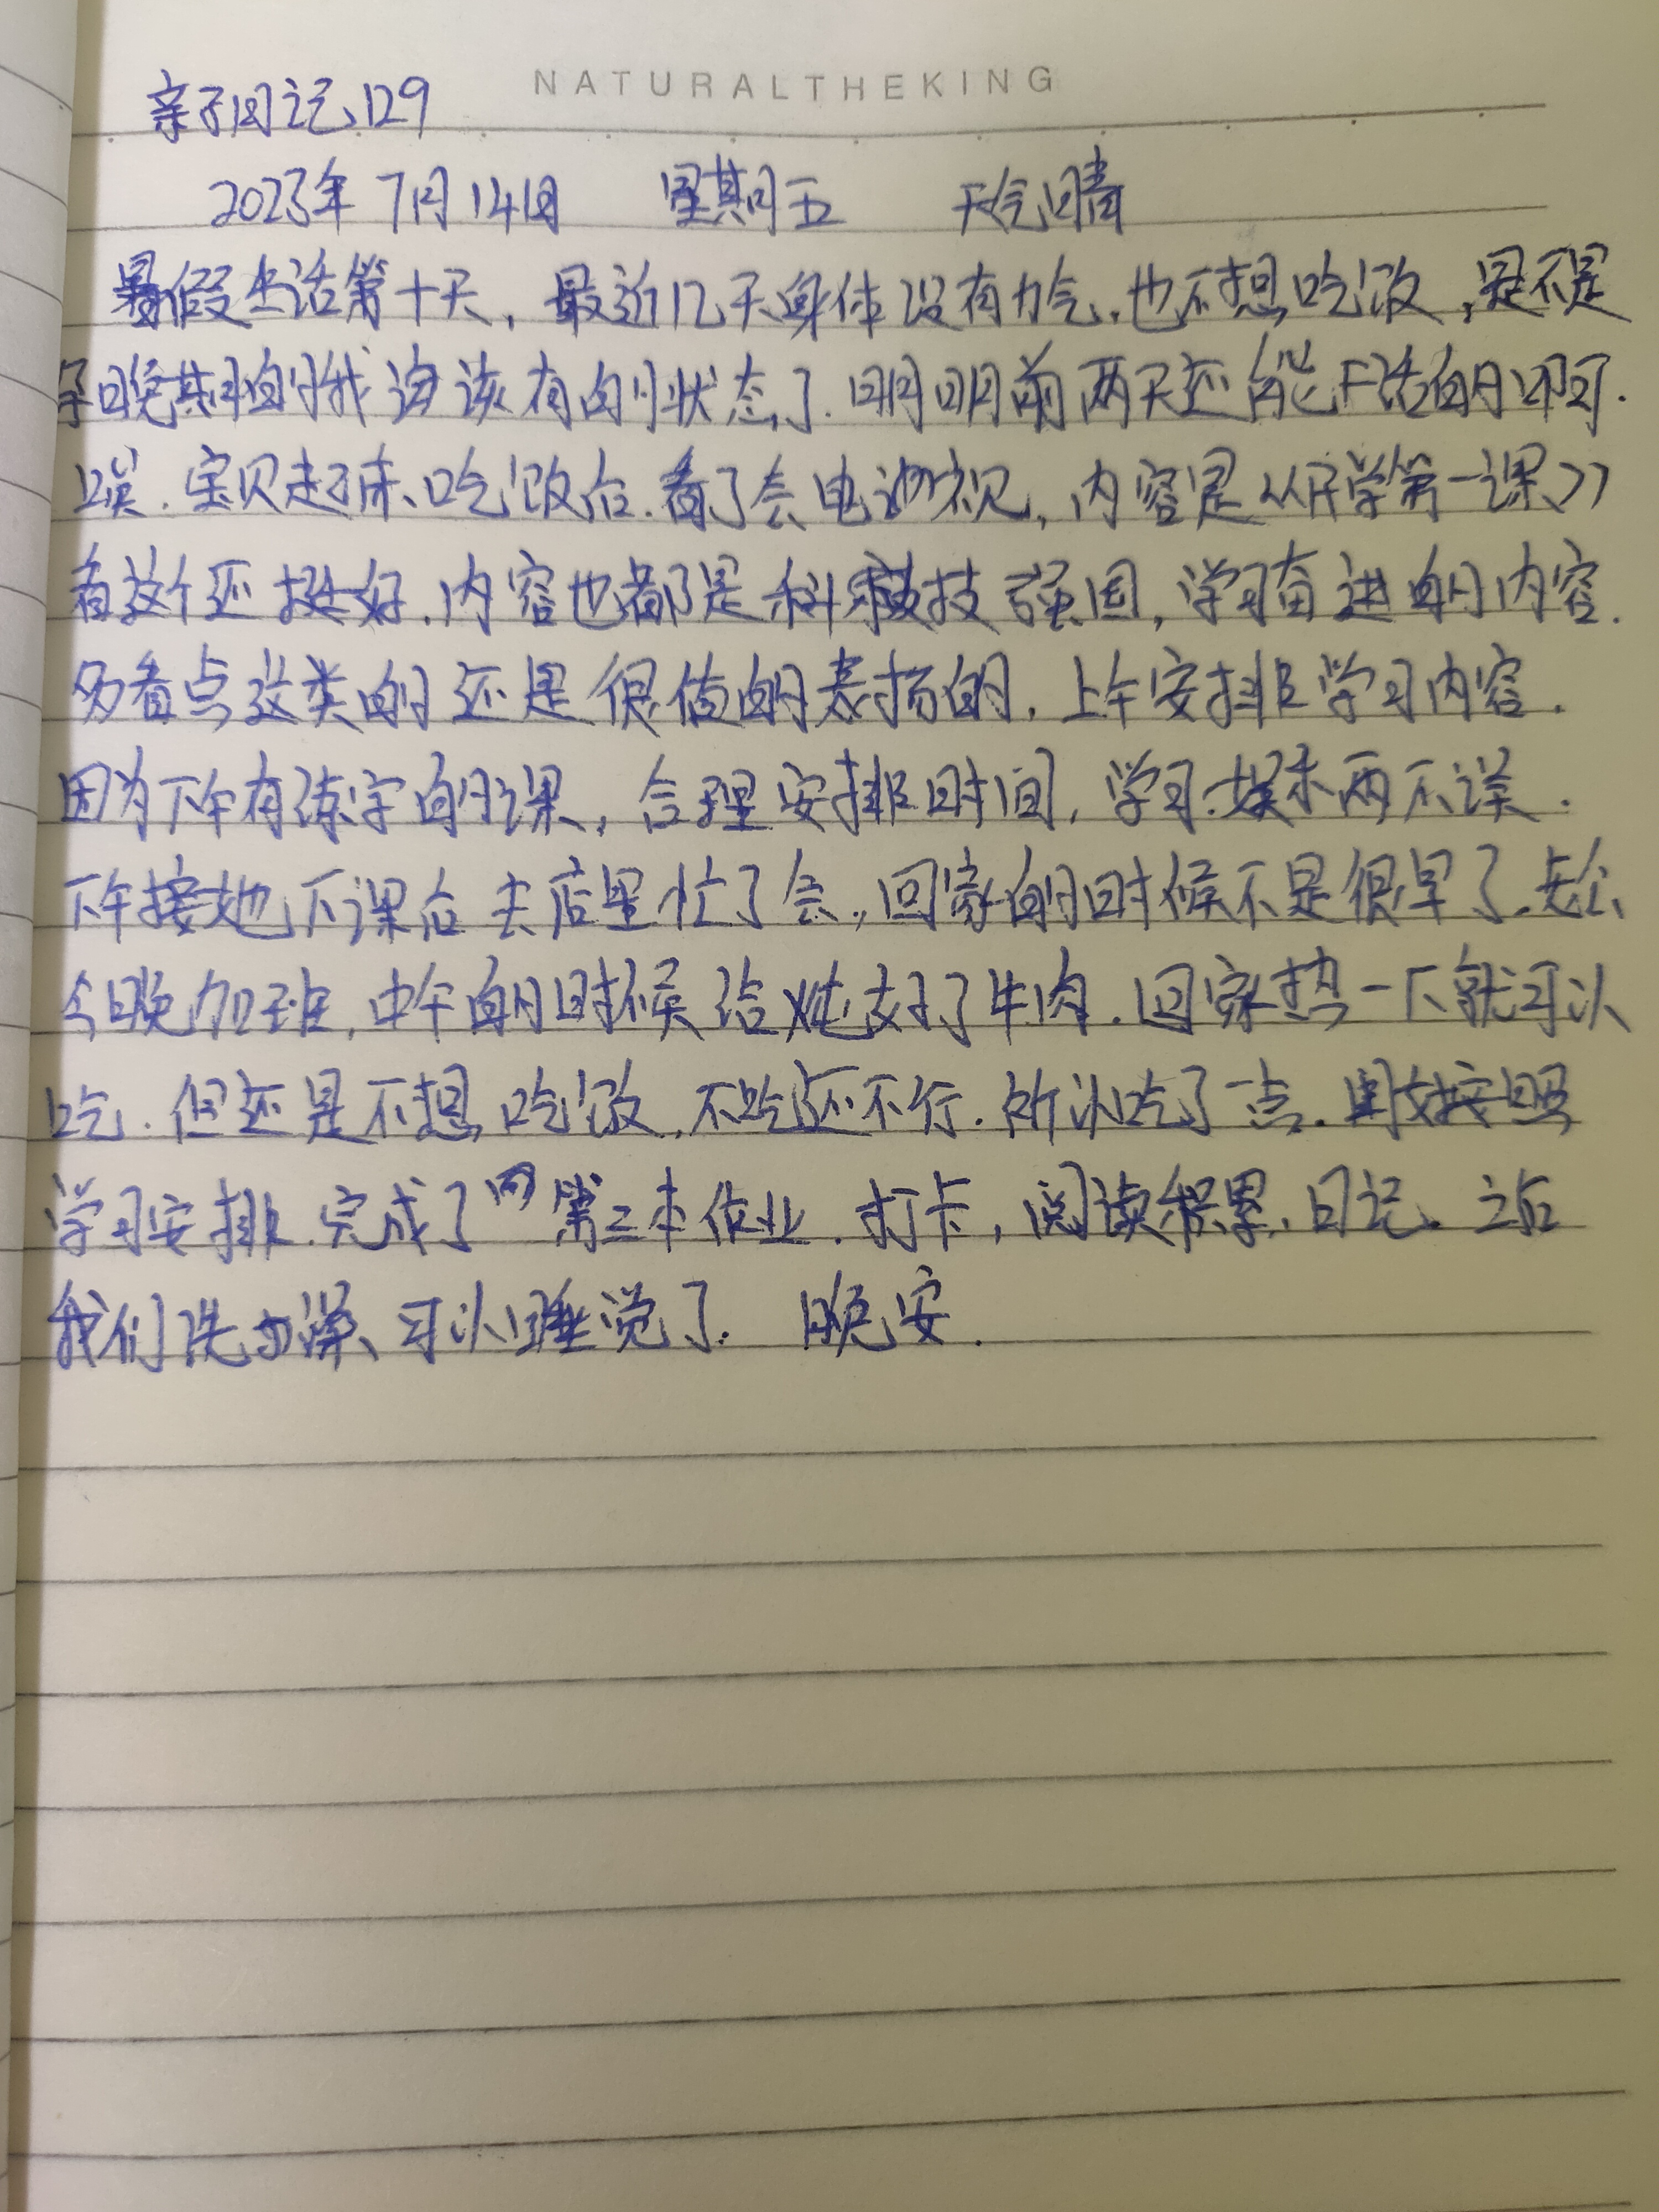 NATURALTHEKING
亲子日记129
2023年7月14日 星期五 天气晴
暑假生活第十天,最近几天身体没有力气,也不想吃饭,是不是
孕晚期的我该有的状态了.明明前两天还能干活的呀.
唉.宝贝起床、吃饭后.看了会电视,内容是《开学第一课》
看这个还挺好.内容也都是科技强国,学习奋进的内容.
多看点这类的还是很值的表扬的.上午安排学习内容.
因为下午有练字的课,合理安排时间,学习.娱乐两不误.
下午接她下课后去店里忙了会,回家的时候不是很早了.老公
今晚加班,中午的时候给炖好了牛肉.回家热一下就可以
吃.但还是不想吃饭,不吃还不行.所以吃了一点.闺女按照
学习安排.完成了第三本作业.打卡,阅读积累,日记.之后
我们洗漱、可以睡觉了.晚安.